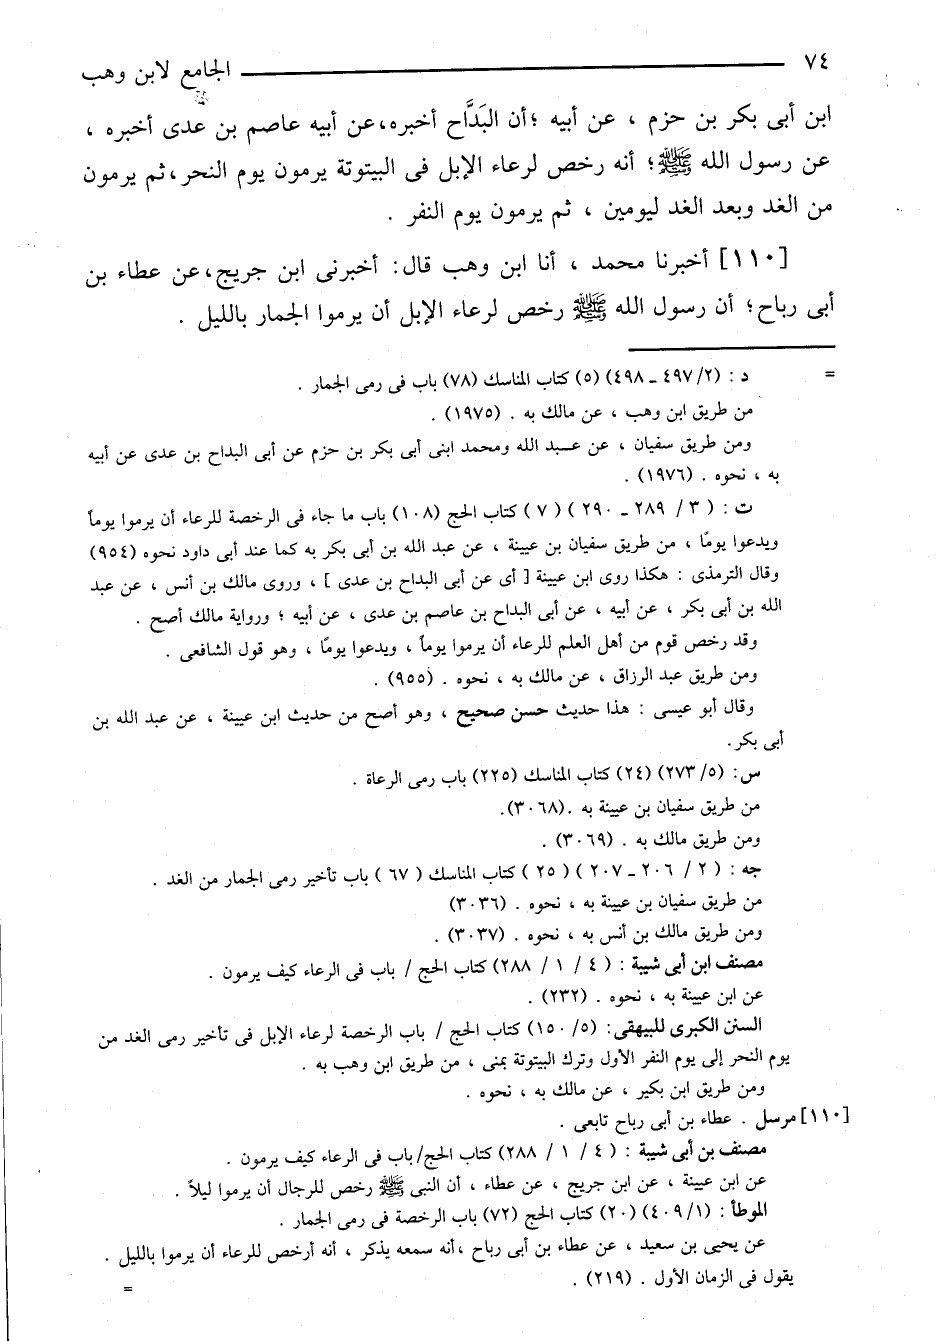 ٧٤ الجامع لابن وهب
ابن أبى بكر بن حزم ، عن أبيه ؛ أن البَدَّاح أخبره، عن أبيه عاصم بن عدى أخبره ،
عن رسول الله ﷺ؛ أنه رخص لرعاء الإبل فى البيتوتة يرمون يوم النحر، ثم يرمون
من الغد وبعد الغد ليومين ، ثم يرمون يوم النفر .
[١١٠] أخبرنا محمد ، أنا ابن وهب قال: أخبرنى ابن جريج، عن عطاء بن
أبى رباح؛ أن رسول الله ﷺ رخص لرعاء الإبل أن يرموا الجمار بالليل .
= د : (٢/ ٤٩٧ ـ ٤٩٨) (٥) كتاب المناسك (٧٨) باب فى رمى الجمار .
من طريق ابن وهب ، عن مالك به . (١٩٧٥) .
ومن طريق سفيان ، عن عبد الله ومحمد ابنى أبى بكر بن حزم عن أبى البداح بن عدى عن أبيه
به ، نحوه . (١٩٧٦) .
ت : ( ٣ / ٢٨٩ ـ ٢٩٠ ) ( ٧ ) كتاب الحج (١٠٨) باب ما جاء فى الرخصة للرعاء أن يرموا يوماً
ويدعوا يومًا ، من طريق سفيان بن عيينة ، عن عبد الله بن أبى بكر به كما عند أبى داود نحوه (٩٥٤)
وقال الترمذى : هكذا روى ابن عيينة [ أى عن أبى البداح بن عدى ] ، وروى مالك بن أنس ، عن عبد
الله بن أبى بكر ، عن أبيه ، عن أبى البداح بن عاصم بن عدى ، عن أبيه ؛ ورواية مالك أصح .
وقد رخص قوم من أهل العلم للرعاء أن يرموا يوماً ، ويدعوا يومًا ، وهو قول الشافعى .
ومن طريق عبد الرزاق ، عن مالك به ، نحوه . (٩٥٥) .
وقال أبو عيسى : هذا حديث حسن صحيح ، وهو أصح من حديث ابن عيينة ، عن عبد الله بن
أبى بكر.
س: (٥/ ٢٧٣) (٢٤) كتاب المناسك (٢٢٥) باب رمى الرعاة .
من طريق سفيان بن عيينة به .(٣٠٦٨).
ومن طريق مالك به . (٣٠٦٩) .
جه : ( ٢ / ٢٠٦ ـ ٢٠٧ ) ( ٢٥ ) كتاب المناسك ( ٦٧ ) باب تأخير رمى الجمار من الغد .
من طريق سفيان بن عيينة به ، نحوه . (٣٠٣٦)
ومن طريق مالك بن أنس به ، نحوه . (٣٠٣٧) .
مصنف ابن أبى شيبة : ( ٤ / ١ / ٢٨٨) كتاب الحج / باب فى الرعاء كيف يرمون .
عن ابن عيينة به ، نحوه . (٢٣٢) .
السنن الكبرى للبيهقى: (٥/ ١٥٠) كتاب الحج / باب الرخصة لرعاء الإبل فى تأخير رمى الغد من
يوم النحر إلى يوم النفر الأول وترك البيتوتة بمنى ، من طريق ابن وهب به .
ومن طريق ابن بكير ، عن مالك به ، نحوه .
[١١٠] مرسل . عطاء بن أبى رباح تابعى .
مصنف بن أبى شيبة : ( ٤ / ١ / ٢٨٨) كتاب الحج/ باب فى الرعاء كيف يرمون .
عن ابن عيينة ، عن ابن جريج ، عن عطاء ، أن النبى ﷺ رخص للرجال أن يرموا ليلاً .
الموطأ : (١/ ٤٠٩) (٢٠) كتاب الحج (٧٢) باب الرخصة فى رمى الجمار .
عن يحيى بن سعيد ، عن عطاء بن أبى رباح ، أنه سمعه يذكر ، أنه أرخص للرعاء أن يرموا بالليل .
يقول فى الزمان الأول . (٢١٩) . =